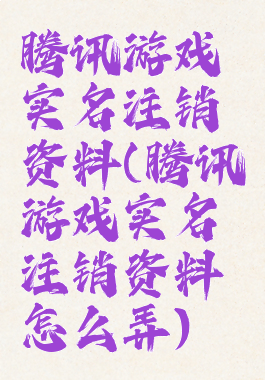 腾讯游戏
实名注销
资料(腾讯
游戏实名
注销资料
怎么弄)